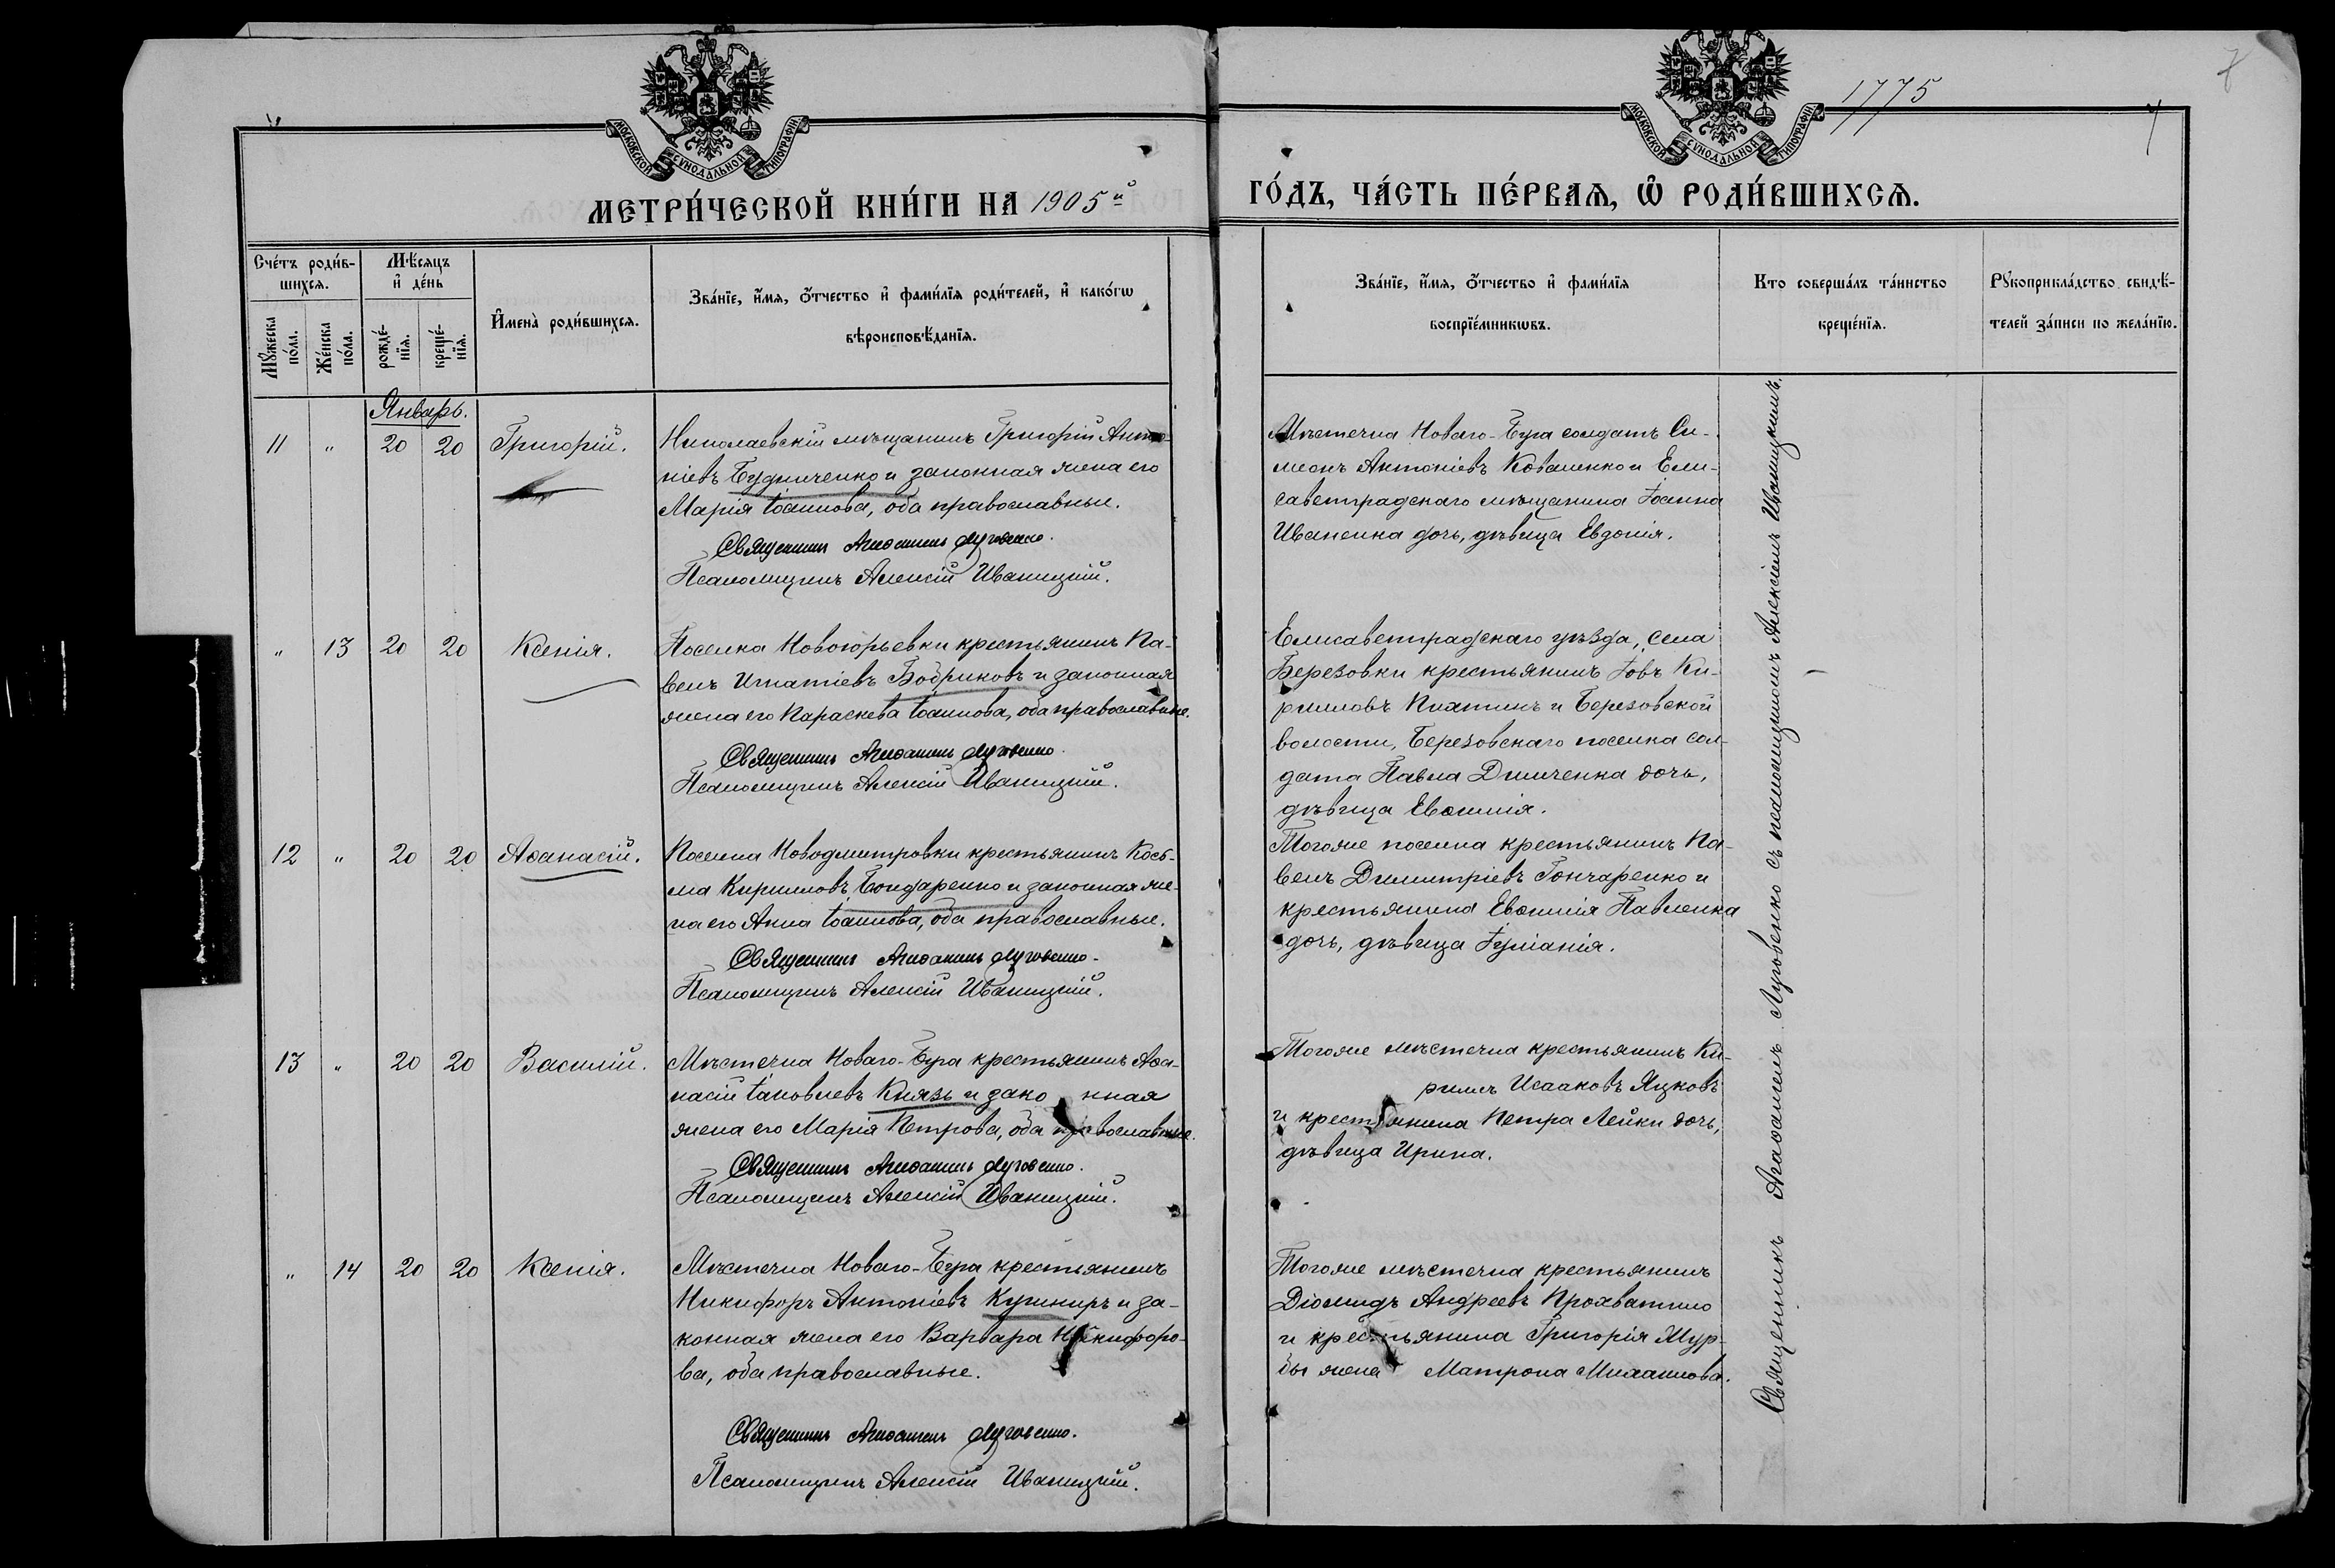 1775
7
7
МОСКОВСКОЙ СУНОДАЛЬНОЙ ТИПОГРАФІИ
МОСКОВСКОЙ СУНОДАЛЬНОЙ ТИПОГРАФІИ
МЕТРИ́ЧЕСКОЙ КНИ́ГИ НА 1905й
ГО́ДЪ, ЧА́СТЬ ПЕ́РВАѦ, Ѡ҆ РОДИ́ВШИХСѦ.
Счéтъ роди́в-
шихсѧ.
Мꙋ́жеска пóла.
Жéнска пóла.
Мѣ́сѧцъ
и҆ дéнь
рождé-
нїѧ.
крещé-
нїѧ.
И҆мена̀ роди́вшихсѧ.
Звáнїе, и҆́мѧ, ѻ҆́тчество и҆ фами́лїѧ роди́телей, и҆ какóгѡ
вѣроисповѣ́данїѧ.
Звáнїе, и҆́мѧ, ѻ҆́тчество и҆ фами́лїѧ
воспрїéмникѡвъ.
Кто совершáлъ тáинство
крещéнїѧ.
Рꙋкоприклáдство свидѣ́-
телей зáписи по желáнїю.
Январь.
11 " 20 20 Григорій.
Николаевскій мѣщанинъ Григорій Анто-
ніевъ Будниченко и законная жена его
Марія Іоаннова, оба православные.
Священникъ Агаѳангелъ Луговенко.
Псаломщикъ Алексій Иваницкій.
Мѣстечка Новаго-Буга солдатъ Си-
меонъ Антоніевъ Коваленко и Ели-
саветградскаго мѣщанина Іоанна
Иваненка дочь, дѣвица Евдокія.
" 13 20 20 Ксенія.
Поселка Новоюрьевки крестьянинъ Па-
велъ Игнатіевъ Бобриковъ и законная
жена его Параскева Іоаннова, оба православные.
Священникъ Агаѳангелъ Луговенко.
Псаломщикъ Алексій Иваницкій.
Елисаветградскаго уѣзда, села
Березовки крестьянинъ Іовъ Ки-
рилловъ и Березовской
волости, Березовскаго поселка сол-
дата Павла Димченка дочь,
дѣвица Евѳимія.
12 " 20 20 Аѳанасій.
Поселка Новодмитровки крестьянинъ Кось-
ма Кирилловъ Бондаренко и законная же-
на его Анна Іоаннова, оба православные.
Священникъ Агаѳангелъ Луговенко.
Псаломщикъ Алексій Иваницкій.
Тогоже поселка крестьянинъ Па-
велъ Димитріевъ Гончаренко и
крестьянина Евѳимія Павленка
дочь, дѣвица Іуліанія.
13 " 20 20 Василій.
Мѣстечка Новаго-Буга крестьянинъ Аѳа-
насій Іаковлевъ Князь и зако нная
жена его Марія Петрова, оба православные.
Священникъ Агаѳангелъ Луговенко.
Псаломщикъ Алексій Иваницкій.
Тогоже мѣстечка крестьянинъ Ки-
риллъ Исааковъ Яцковъ
и крестьянина Петра Лейки дочь,
дѣвица Ирина.
" 14 20 20 Ксенія.
Мѣстечка Новаго-Буга крестьянинъ
Никифоръ Антоніевъ Кушниръ и за-
конная жена его Варвара Никифоро-
ва, оба православные.
Священникъ Агаѳангелъ Луговенко.
Псаломщикъ Алексій Иваницкій.
Тогоже мѣстечка крестьянинъ
Діомидъ Андреевъ Прохватило
и крестьянина Григорія Мур-
бы жена Матрона Михаилова.
Священникъ Агаѳангелъ Луговенко съ псаломщикомъ Алексіемъ Иваницкимъ.